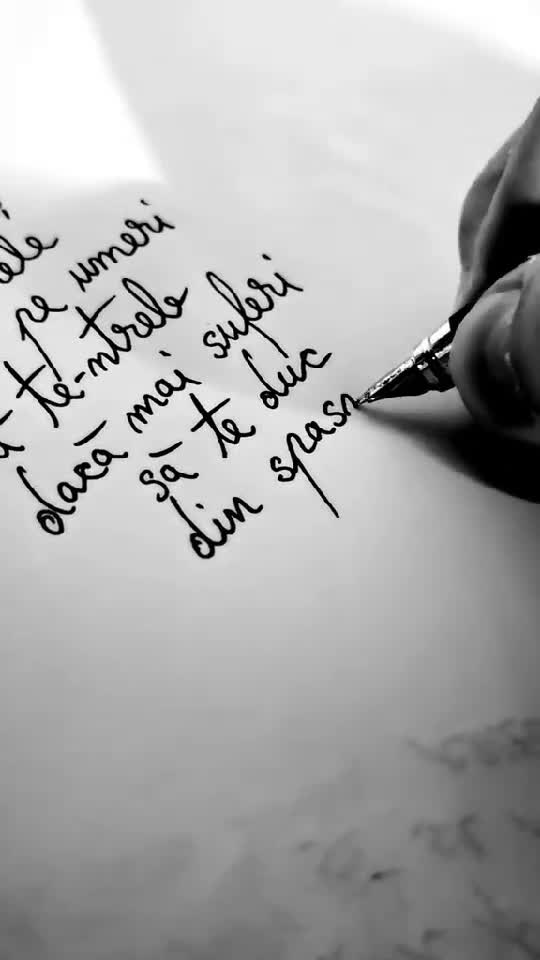 pe umeri
te-ntreb
dacă mai suferi
să te duc
din spas